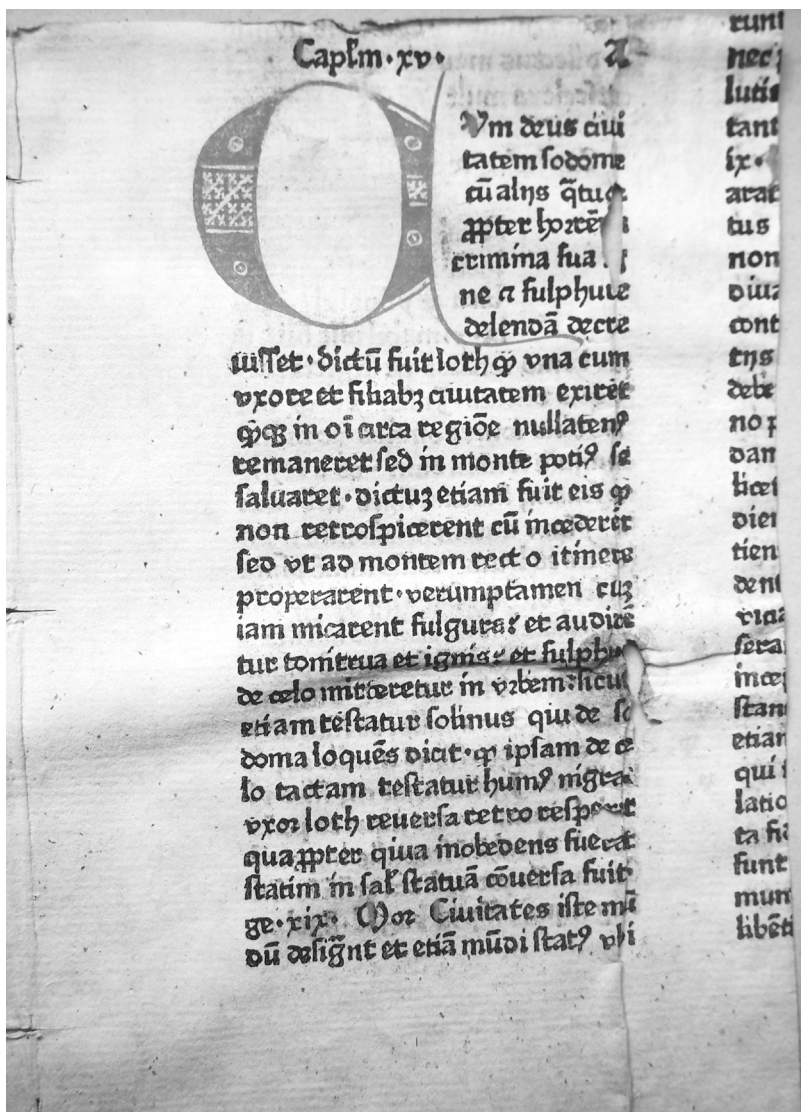 Capłm · xv · A
CVm deus ciui
tatem sodome
cū alijs q̄tuo
ꝓpter horrē
crimina sua
ne ⁊ sulphure
delendā decre
uisset · dictū fuit loth ꝙ vna cum
vxore et filiabꝫ ciuitatem exiret
ꝙqꝫ in oī circa regiōe nullatenꝰ
remaneret sed in monte potiꝰ se
saluaret · dictuꝫ etiam fuit eis ꝙ
non retrospicerent cū incederēt
sed vt ad montem recto itinere
properarent · verumptamen cuꝫ
iam micarent fulgura: et audirē
tur tonitrua et ignis: et sulphur
de celo mitteretur in vrbem: sicut
etiam testatur solinus qui de so
doma loquēs dicit · ꝙ ipsam de ce
lo tactam testatur humꝰ nigra:
vxor loth reuersa retro respexit
quaꝓpter quia inobediens fuerat
statim in sał statuā cōuersa fuit
ge · xix · Mor Ciuitates iste mū
dū desigñnt et etiā mūdi statꝰ vbi
runt
nec
lutis
tant
ix ·
arat
tus
non
diui
cont
tijs
debe
no p
dam
licet
dien
tien
dent
vicia
sera
incep
stan
etiam
qui
latio
ta fi
sunt
mun
libēti